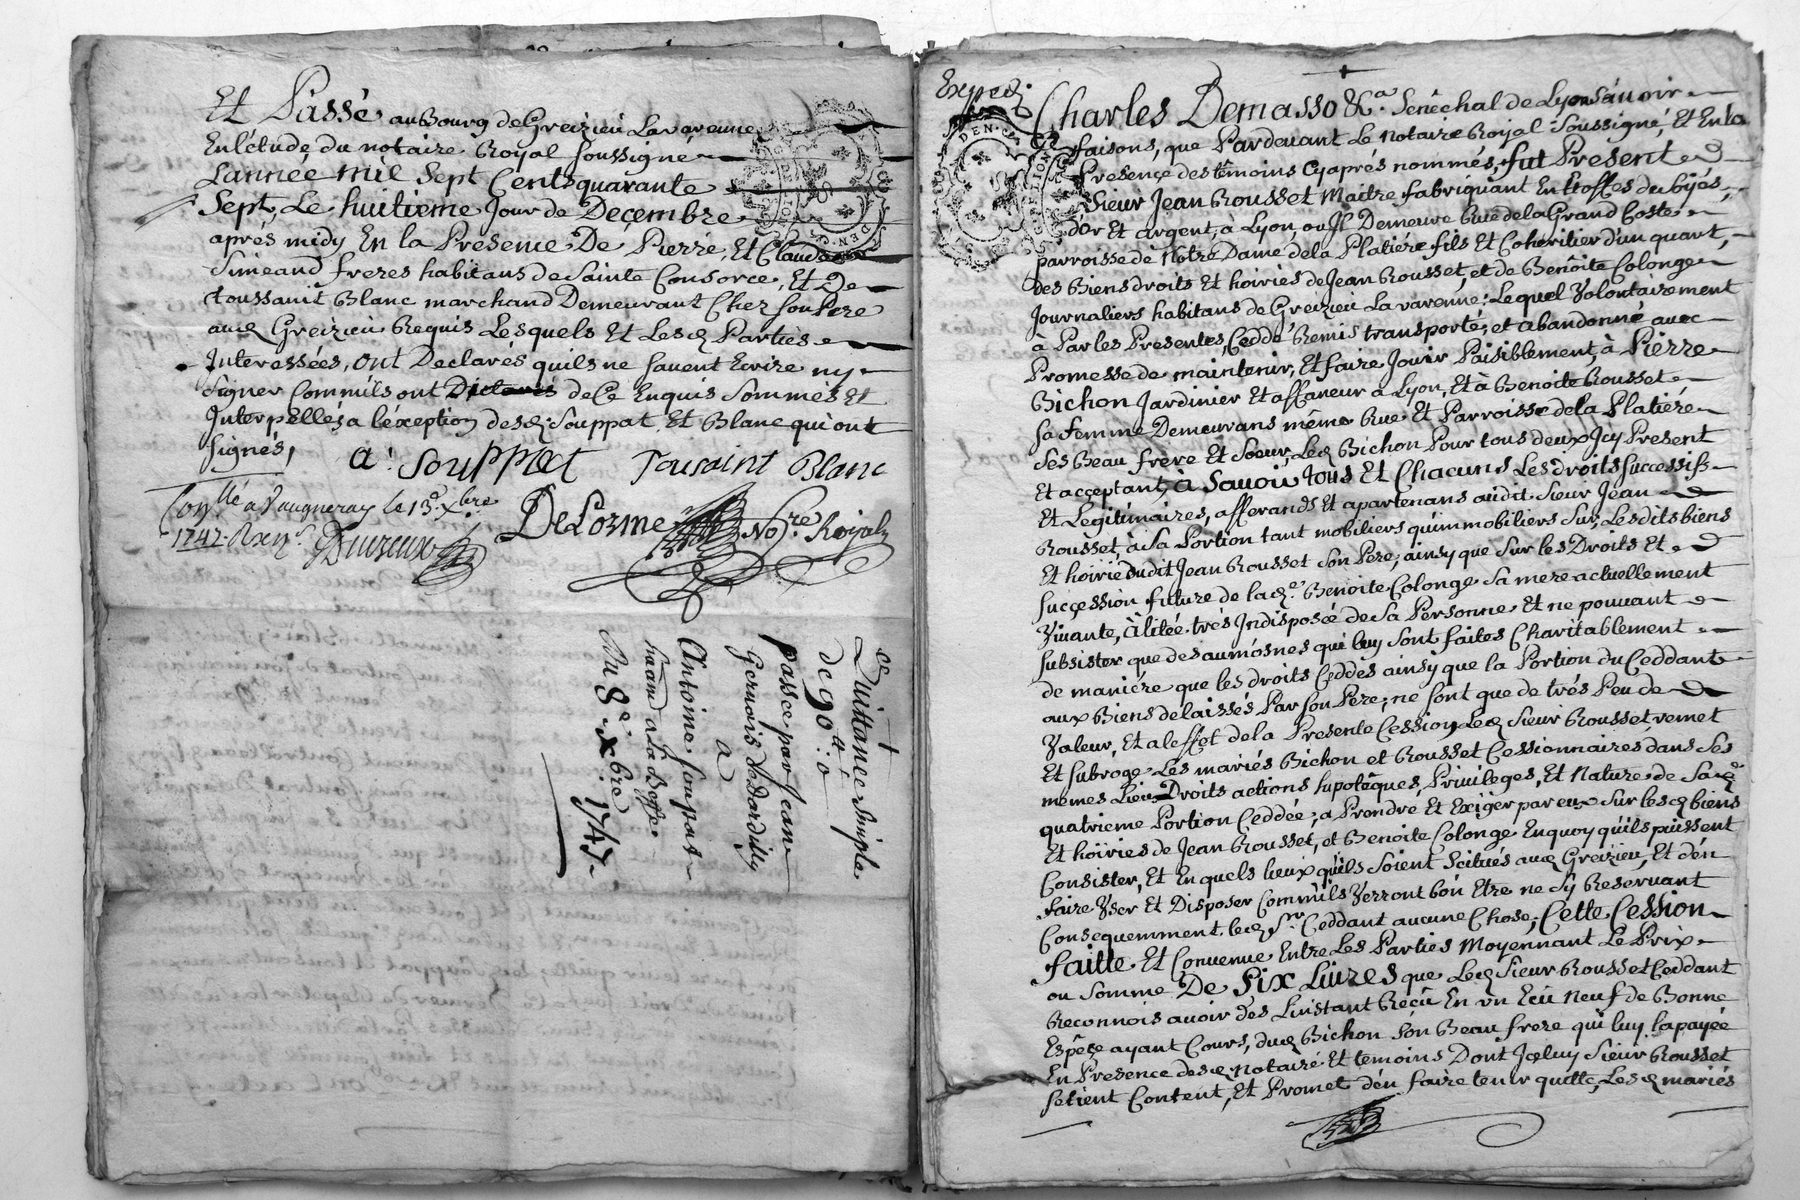 Et Passé au Bourg de Greizieu Lavarenne
En l'étude du notaire Royal soussigné
L'année mil Sept Cents quarante
Sept, Le huitieme Jour de Decembre
aprés midy En la Presence De Pierre, Et Claude
Simeand freres habitans de Sainte Consorce, Et De
toussaint Blanc marchand Demeurant Chez son Pere
aud Greizieu Requis Lesquels Et Lesd Parties
Interessées, ont Declarés qu'ils ne savent Ecrire ny
signer Comm'ils ont de Ce Enquis Sommés Et
Interpellés a l'éxception desd Souppat, Et Blanc qui ont
signés,
a: Souppat Tousaint Blanc
DeLorme No.re Royal
Con.llé a Vaugneray le 13e Xbre
1747.
ce
Quittance Simple
de 90 tt: 0
passée par Jean
Gervais de Dardilly
a
Antoine Soupat
de La Boffe
Du 8e Xbre 1747
Exped.
Charles Demasso &a. Senéchal de Lyon savoir
faisons, que Pardevant Le Notaire Royal Soussigné, Et En la
Presence des témoins Cyaprés nommés, fut Present
Sieur Jean Rousset Maitre fabriquant En Etoffes de
d'or Et argent, à Lyon, ou Il Demeure Rue de la Grand Coste
parroisse de Notre Dame de la Platiére fils Et Coheritier d'un quart,
des Biens droits Et hoiries de Jean Rousset, et de Benôite Colonge
Journaliers habitans de Greizieu Lavarenne; Lequel Volontairement
à Par les Presentes, Ceddé Remis transporté, et abandonné avec
Promesse de maintenir, Et faire Jouir Paisiblement, à Pierre
Bichon Jardinier Et affaneur à Lyon, Et à Benoite Rousset
sa femme Demeurans même Rue Et Parroisse de la Platiére
Ses Beau frere Et Soeur, Led Bichon Pour tous deux Icy Present
Et acceptant, à Savoir tous Et Chacuns Les droits successifs
Et Legitimaires, afferands Et apartenans audit Sieur Jean
Rousset, à Sa Portion tant mobiliers qu'immobiliers Sur, Lesdits biens
Et hoirie Dudit Jean Rousset Son Pere, ainsy que Sur les Droits Et
succession future de lad.e Benoite Colonge Sa mere actuellement
Vivante, Alitée trés Indisposée de Sa Personne Et ne pouvant
subsister que des aumôsnes qui luy Sont faites Charitablement
de maniére que les droits Ceddés ainsy que la Portion du Ceddant
aux Biens delaissés Par son Pere; ne sont que de trés Peu de
Valeur, Et a l'effet de la Presente Cession, Led Sieur Rousset, remet
Et subroge Les mariés Bichon et Rousset Cessionnaires, dans Ses
mêmes Lieu Droits actions hipotêques, Privileges, Et Nature de Sad.e
quatrieme Portion Ceddée; a Prendre Et Exiger par eux Sur lesd biens
Et hoiries de Jean Rousset, et Benoite Colonge En quoy qu'ils puissent
Consister, Et En quels lieux qu'ils Soient Scitués aud Greizieu, Et d'én
faire User Et Disposer Comm'ils Verront bon Etre ne Sy Reservant
Consequemment, led Sr. Ceddant aucune Chose, Cette Cession
faitte Et Convenue Entre Les Parties Moyennant Le Prix
ou Somme De Six Livres que Led Sieur Rousset Ceddant
Reconnois avoir dès L'instant Reçû En un Ecû Neuf de Bonne
Espêce ayant Cours, dud Bichon Son Beau frere qui luy la payée
En Presence desd Notaire Et témoins Dont Iceluy Sieur Rousset
se tient Content, Et Promet d'én faire tenir quitte, Lesd mariés